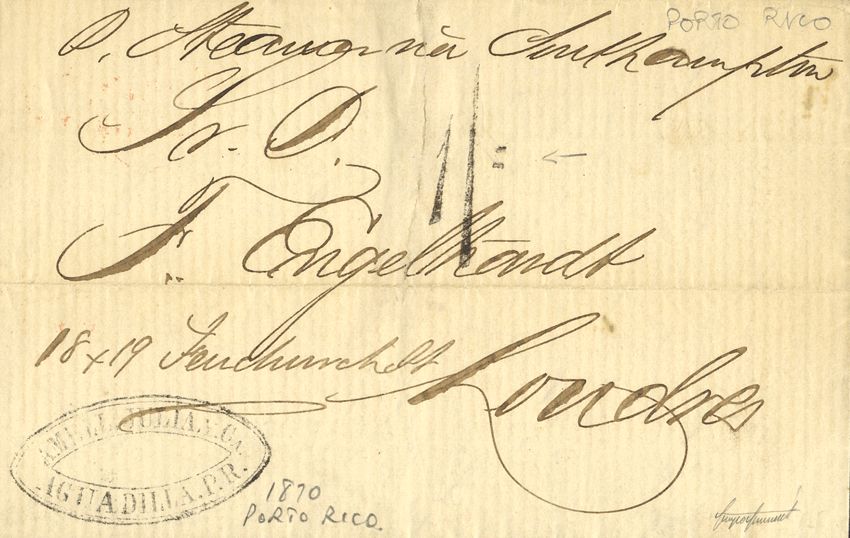 PORTO RICO
P. Steamer via Southampton
Sr. D.
F. Engelhardt
18 x 19 Fenchurch St
Londres
JULIA Y Ca.
AGUADILLA. P. R.
1870
PORTO RICO.